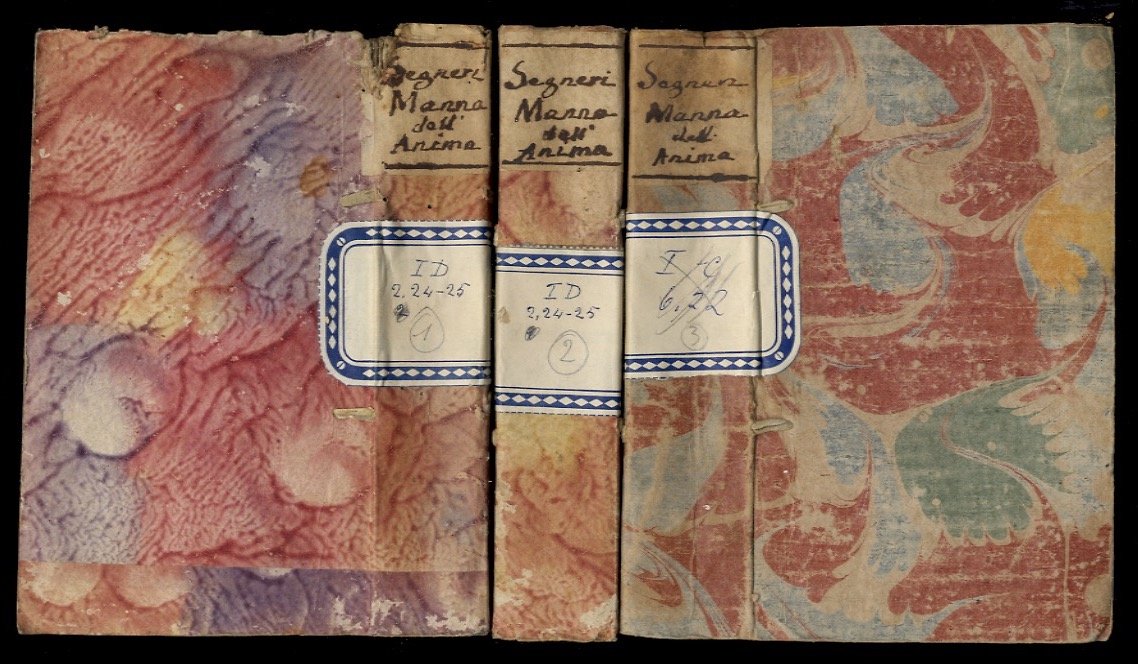 Segneri
Manna
dell'
Anima
ID
2,24-25
1
Segneri
Manna
dell'
Anima
ID
2,24-25
2
Segneri
Manna
dell'
Anima
I C
6,22
3